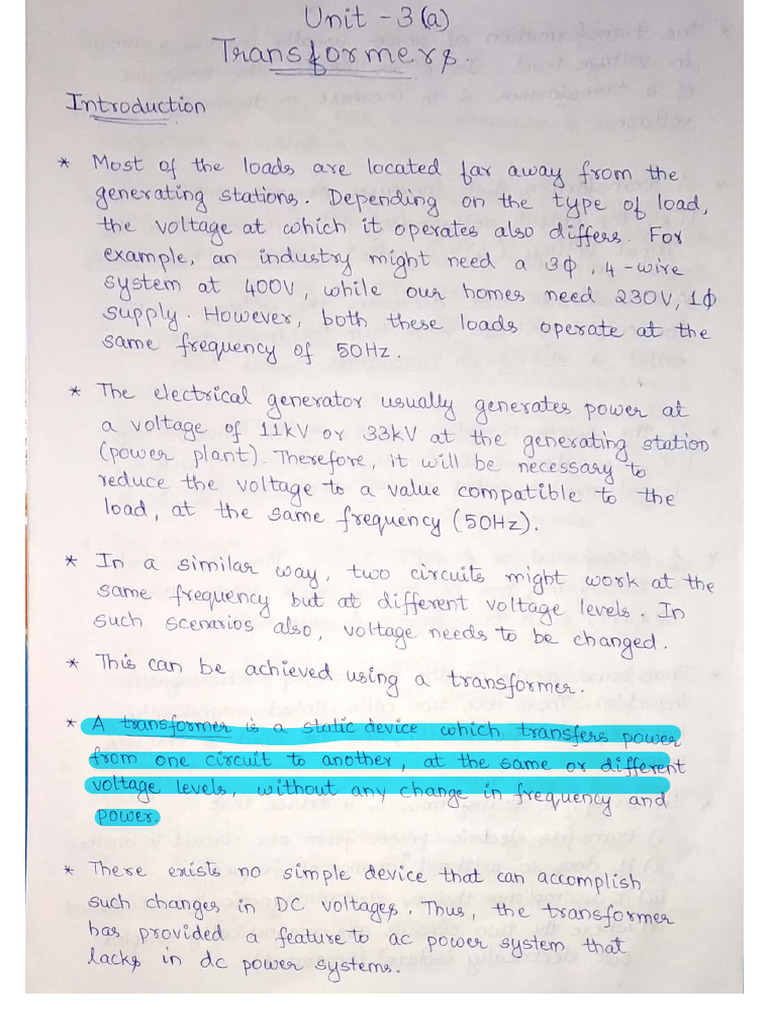 Unit - 3(a)
Transformers.
Introduction
* Most of the loads are located far away from the
generating stations. Depending on the type of load,
the voltage at which it operates also differs. For
example, an industry might need a 3ϕ, 4-wire
system at 400V, while our homes need 230V, 1ϕ
supply. However, both these loads operate at the
same frequency of 50Hz.
* The electrical generator usually generates power at
a voltage of 11kV or 33kV at the generating station
(power plant). Therefore, it will be necessary to
reduce the voltage to a value compatible to the
load, at the same frequency (50Hz).
* In a similar way, two circuits might work at the
same frequency but at different voltage levels. In
such scenarios also, voltage needs to be changed.
* This can be achieved using a transformer.
* A transformer is a static device which transfers power
from one circuit to another, at the same or different
voltage levels, without any change in frequency and
power.
* There exists no simple device that can accomplish
such changes in DC voltages. Thus, the transformer
has provided a feature to ac power system that
lacks in dc power systems.